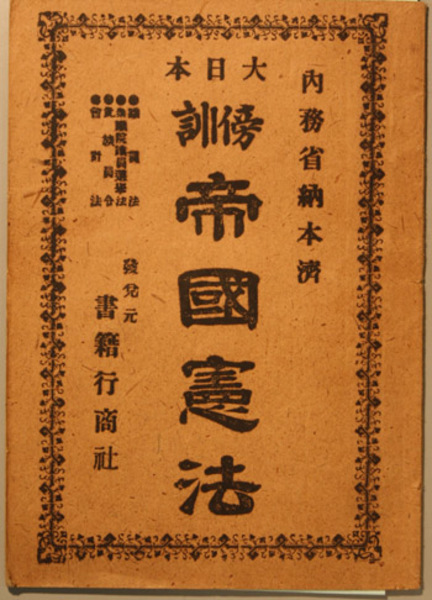 內務省納本濟
大日本
傍訓
帝國憲法
●議院法
●衆議院議員選擧法
●貴族院令
●會計法
發兌元
書籍行商社